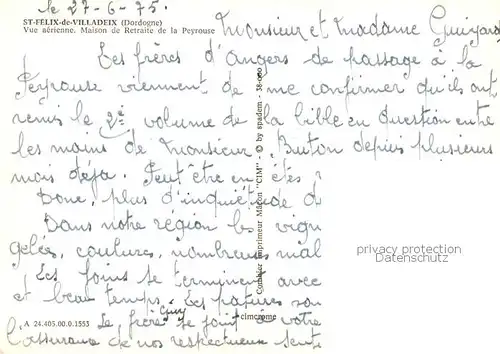 le 27-6-75.
ST-FELIX-de-VILLADEIX (Dordogne)
Vue aérienne. Maison de Retraite de la Peyrouse
Monsieur et Madame Guiyard
Les frères d'Angers de passage à la
Peyrouse viennent de me confirmer qu'ils ont
remis le 2e volume de la bible en question entre
les mains de Monsieur Burton depuis plusieurs
mois déjà. Peut être en étes
Donc, plus d'inquiétude d
Dans notre région les vign
gelés, coutures, nombreuses mal
Les foins se terminent avec
et beau temps. Les
Le frère Guy se joint à votre
l'assurance de nos respectueux sent
A 24.405.00.0.1553
Combier Imprimeur Mâcon "CIM" - © by spadem - 38-000
cimcrome
privacy protection
Datenschutz